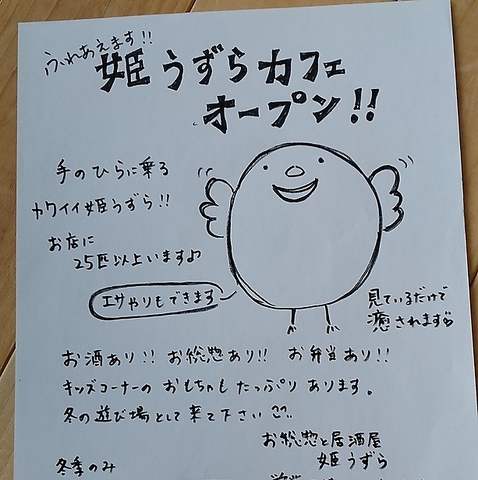 ふれあえます!!
姫うずらカフェ
オープン!!
手のひらに乗る
カワイイ姫うずら!!
お店に
25匹以上います♪
エサやりもできます
見ているだけで
癒されます
お酒あり!! お総惣あり!! お弁当あり!!
キッズコーナーのおもちゃもたっぷりあります。
冬の遊び場として来て下さい
お総惣と居酒屋
姫うずら
冬季のみ